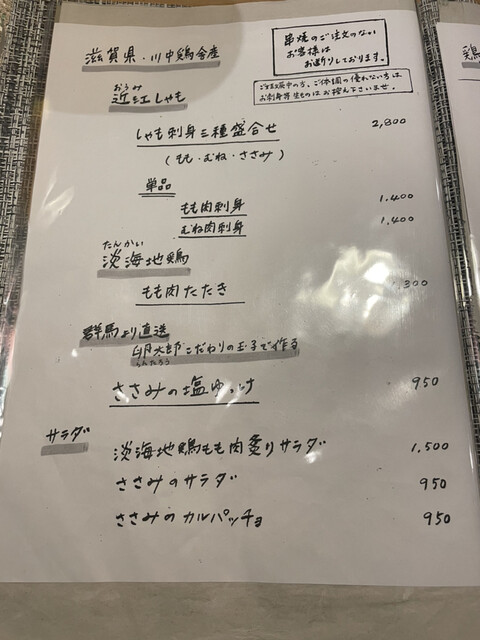 滋賀県・川中鶏舎産
串焼のご注文のない
お客様は
お断りしております。
ご妊娠中の方、ご体調の優れない方は
お刺身等生ものはお控え下さいませ。
おうみ
近江しゃも
しゃも刺身三種盛合せ 2,800
(もも・むね・ささみ)
単品
もも肉刺身 1,400
むね肉刺身 1,400
たんかい
淡海地鶏
もも肉たたき 300
群馬より直送
卵太郎こだわりの玉子で作る
らんたろう
ささみの塩ゆっけ 950
サラダ
淡海地鶏もも肉炙りサラダ 1,500
ささみのサラダ 950
ささみのカルパッチョ 950
鶏